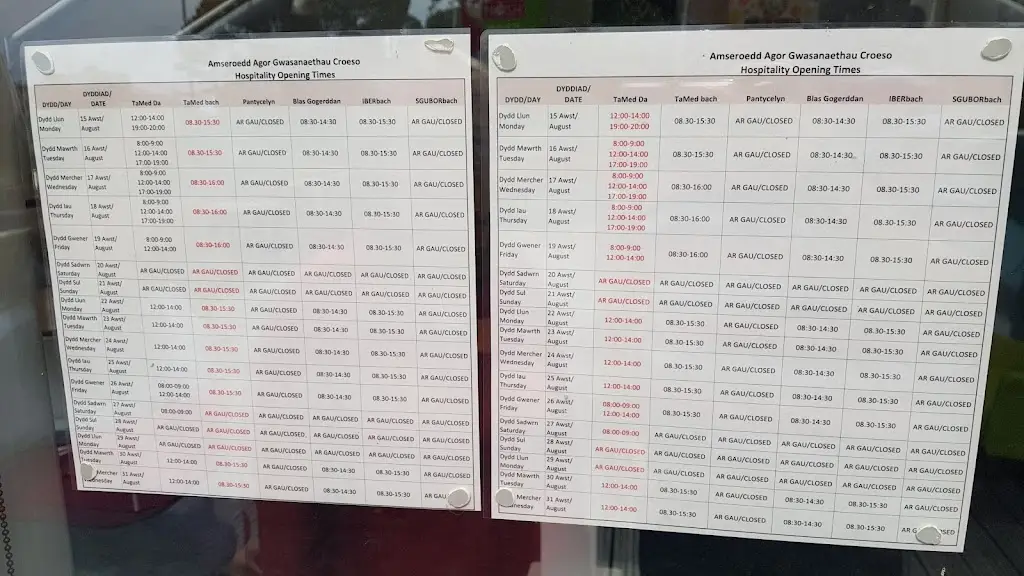 Amseroedd Agor Gwasanaethau Croeso
Hospitality Opening Times
DYDD/DAY DYDDIAD/ DATE TaMed Da TaMed bach Pantycelyn Blas Gogerddan IBERbach SGUBORbach
Dydd Llun Monday 15 Awst/ August 12:00-14:00 19:00-20:00 08.30-15:30 AR GAU/CLOSED 08:30-14:30 08.30-15:30 AR GAU/CLOSED
Dydd Mawrth Tuesday 16 Awst/ August 8:00-9:00 12:00-14:00 17:00-19:00 08.30-15:30 AR GAU/CLOSED 08:30-14:30 08.30-15:30 AR GAU/CLOSED
Dydd Mercher Wednesday 17 Awst/ August 8:00-9:00 12:00-14:00 17:00-19:00 08:30-16:00 AR GAU/CLOSED 08:30-14:30 08.30-15:30 AR GAU/CLOSED
Dydd Iau Thursday 18 Awst/ August 8:00-9:00 12:00-14:00 17:00-19:00 08:30-16:00 AR GAU/CLOSED 08:30-14:30 08.30-15:30 AR GAU/CLOSED
Dydd Gwener Friday 19 Awst/ August 8:00-9:00 12:00-14:00 08:30-16:00 AR GAU/CLOSED 08:30-14:30 08.30-15:30 AR GAU/CLOSED
Dydd Sadwrn Saturday 20 Awst/ August AR GAU/CLOSED AR GAU/CLOSED AR GAU/CLOSED AR GAU/CLOSED AR GAU/CLOSED AR GAU/CLOSED
Dydd Sul Sunday 21 Awst/ August AR GAU/CLOSED AR GAU/CLOSED AR GAU/CLOSED AR GAU/CLOSED AR GAU/CLOSED AR GAU/CLOSED
Dydd Llun Monday 22 Awst/ August 12:00-14:00 08.30-15:30 AR GAU/CLOSED 08:30-14:30 08.30-15:30 AR GAU/CLOSED
Dydd Mawrth Tuesday 23 Awst/ August 12:00-14:00 08.30-15:30 AR GAU/CLOSED 08:30-14:30 08.30-15:30 AR GAU/CLOSED
Dydd Mercher Wednesday 24 Awst/ August 12:00-14:00 08.30-15:30 AR GAU/CLOSED 08:30-14:30 08.30-15:30 AR GAU/CLOSED
Dydd Iau Thursday 25 Awst/ August 12:00-14:00 08.30-15:30 AR GAU/CLOSED 08:30-14:30 08.30-15:30 AR GAU/CLOSED
Dydd Gwener Friday 26 Awst/ August 08:00-09:00 12:00-14:00 08.30-15:30 AR GAU/CLOSED 08:30-14:30 08.30-15:30 AR GAU/CLOSED
Dydd Sadwrn Saturday 27 Awst/ August 08:00-09:00 AR GAU/CLOSED AR GAU/CLOSED AR GAU/CLOSED AR GAU/CLOSED AR GAU/CLOSED
Dydd Sul Sunday 28 Awst/ August AR GAU/CLOSED AR GAU/CLOSED AR GAU/CLOSED AR GAU/CLOSED AR GAU/CLOSED AR GAU/CLOSED
Dydd Llun Monday 29 Awst/ August AR GAU/CLOSED AR GAU/CLOSED AR GAU/CLOSED AR GAU/CLOSED AR GAU/CLOSED AR GAU/CLOSED
Dydd Mawrth Tuesday 30 Awst/ August 12:00-14:00 08.30-15:30 AR GAU/CLOSED 08:30-14:30 08.30-15:30 AR GAU/CLOSED
Mercher 31 Awst/ August 12:00-14:00 08.30-15:30 AR GAU/CLOSED 08:30-14:30 08.30-15:30 AR GAU
Amseroedd Agor Gwasanaethau Croeso
Hospitality Opening Times
DYDD/DAY DYDDIAD/ DATE TaMed Da TaMed bach Pantycelyn Blas Gogerddan IBERbach SGUBORbach
Dydd Llun Monday 15 Awst/ August 12:00-14:00 19:00-20:00 08.30-15:30 AR GAU/CLOSED 08:30-14:30 08.30-15:30 AR GAU/CLOSED
Dydd Mawrth Tuesday 16 Awst/ August 8:00-9:00 12:00-14:00 17:00-19:00 08.30-15:30 AR GAU/CLOSED 08:30-14:30 08.30-15:30 AR GAU/CLOSED
Dydd Mercher Wednesday 17 Awst/ August 8:00-9:00 12:00-14:00 17:00-19:00 08:30-16:00 AR GAU/CLOSED 08:30-14:30 08.30-15:30 AR GAU/CLOSED
Dydd Iau Thursday 18 Awst/ August 8:00-9:00 12:00-14:00 17:00-19:00 08:30-16:00 AR GAU/CLOSED 08:30-14:30 08.30-15:30 AR GAU/CLOSED
Dydd Gwener Friday 19 Awst/ August 8:00-9:00 12:00-14:00 08:30-16:00 AR GAU/CLOSED 08:30-14:30 08.30-15:30 AR GAU/CLOSED
Dydd Sadwrn Saturday 20 Awst/ August AR GAU/CLOSED AR GAU/CLOSED AR GAU/CLOSED AR GAU/CLOSED AR GAU/CLOSED AR GAU/CLOSED
Dydd Sul Sunday 21 Awst/ August AR GAU/CLOSED AR GAU/CLOSED AR GAU/CLOSED AR GAU/CLOSED AR GAU/CLOSED AR GAU/CLOSED
Dydd Llun Monday 22 Awst/ August 12:00-14:00 08.30-15:30 AR GAU/CLOSED 08:30-14:30 08.30-15:30 AR GAU/CLOSED
Dydd Mawrth Tuesday 23 Awst/ August 12:00-14:00 08.30-15:30 AR GAU/CLOSED 08:30-14:30 08.30-15:30 AR GAU/CLOSED
Dydd Mercher Wednesday 24 Awst/ August 12:00-14:00 08.30-15:30 AR GAU/CLOSED 08:30-14:30 08.30-15:30 AR GAU/CLOSED
Dydd Iau Thursday 25 Awst/ August 12:00-14:00 08.30-15:30 AR GAU/CLOSED 08:30-14:30 08.30-15:30 AR GAU/CLOSED
Dydd Gwener Friday 26 Awst/ August 08:00-09:00 12:00-14:00 08.30-15:30 AR GAU/CLOSED 08:30-14:30 08.30-15:30 AR GAU/CLOSED
Dydd Sadwrn Saturday 27 Awst/ August 08:00-09:00 AR GAU/CLOSED AR GAU/CLOSED AR GAU/CLOSED AR GAU/CLOSED AR GAU/CLOSED
Dydd Sul Sunday 28 Awst/ August AR GAU/CLOSED AR GAU/CLOSED AR GAU/CLOSED AR GAU/CLOSED AR GAU/CLOSED AR GAU/CLOSED
Dydd Llun Monday 29 Awst/ August AR GAU/CLOSED AR GAU/CLOSED AR GAU/CLOSED AR GAU/CLOSED AR GAU/CLOSED AR GAU/CLOSED
Dydd Mawrth Tuesday 30 Awst/ August 12:00-14:00 08.30-15:30 AR GAU/CLOSED 08:30-14:30 08.30-15:30 AR GAU/CLOSED
Mercher 31 Awst/ August 12:00-14:00 08.30-15:30 AR GAU/CLOSED 08:30-14:30 08.30-15:30